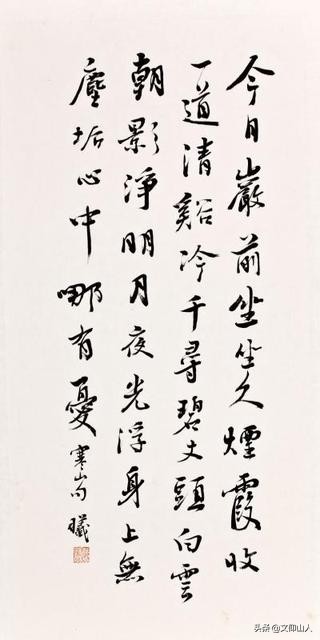 今日巖前坐坐久煙霞收
一道清谿冷千尋碧丈頭白雲
朝影淨明月夜光浮身上無
塵垢心中哪有憂 寒山句 曦
头条@文仰山人